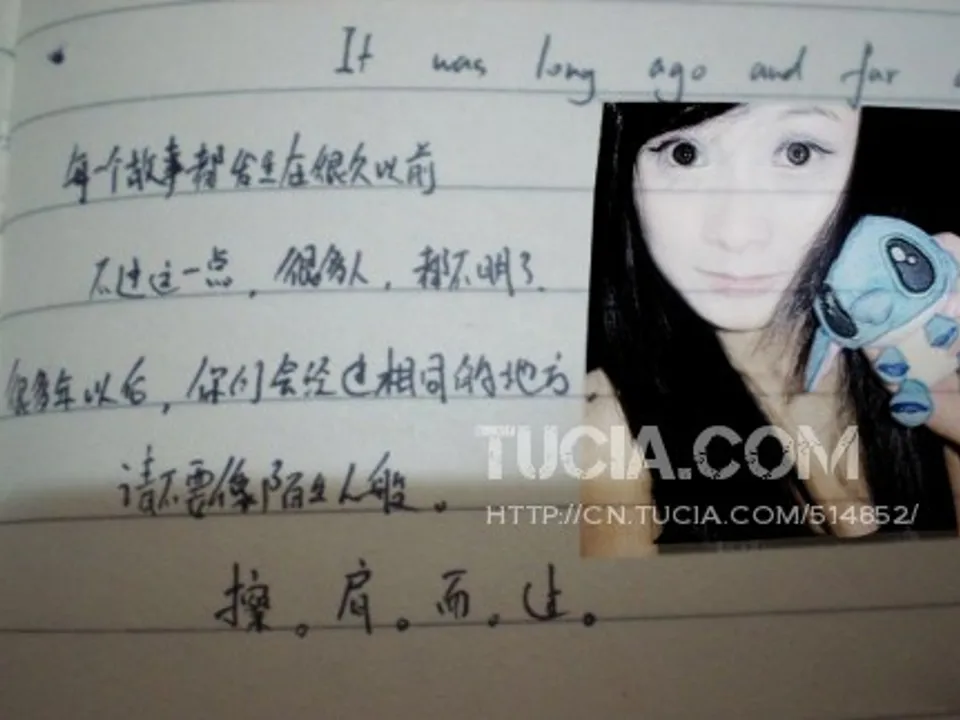 It was long ago and far a
每个故事都发生在很久以前
不过这一点，很多人，都不明了.
很多年以后，你们会经过相同的地方.
请不要像陌生人般。
擦。肩。而。过。
TUCIA.COM
HTTP://CN.TUCIA.COM/514852/